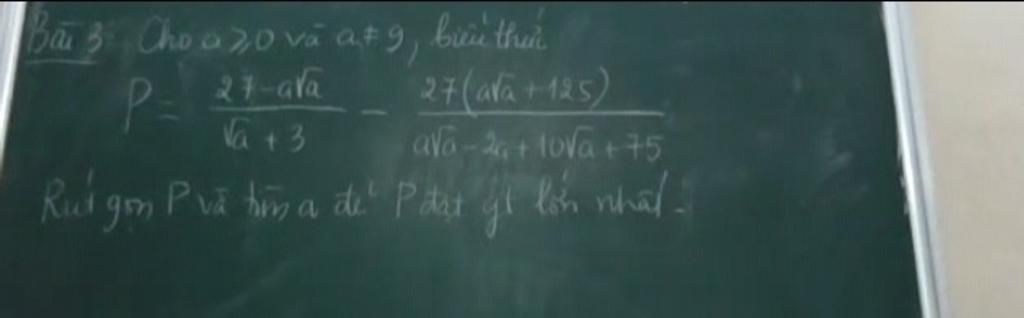 Bài 3: Cho a ≥ 0 và a ≠ 9, biểu thức
P = (27 - a√a)/(√a + 3) - 27(a√a + 125)/(a√a - 2a + 10√a + 75)
Rút gọn P và tìm a để P đạt gt lớn nhất.